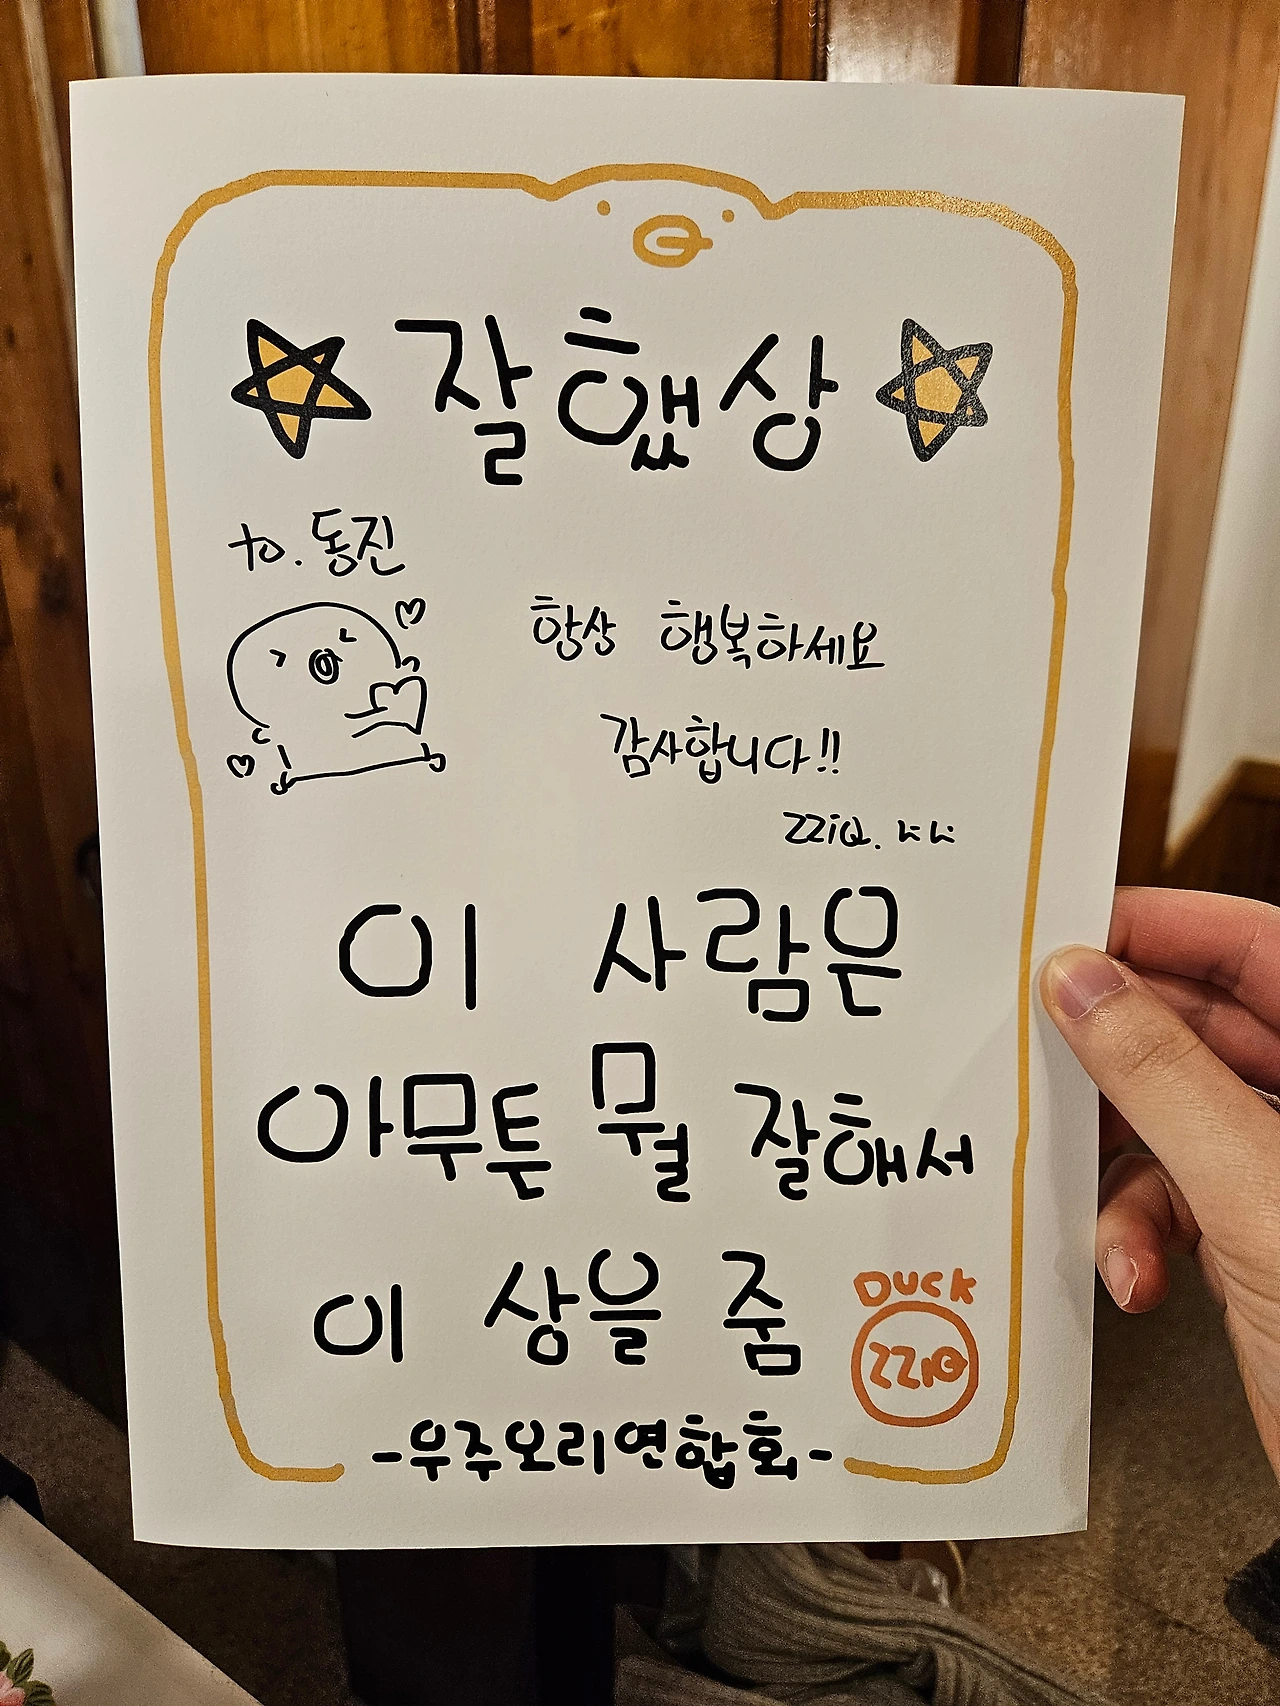 잘했상
to. 동진
항상 행복하세요
감사합니다!!
ZZiQ.
이 사람은
아무튼 뭘 잘해서
이 상을 줌
DUCK
ZZiQ
-우주오리연합회-